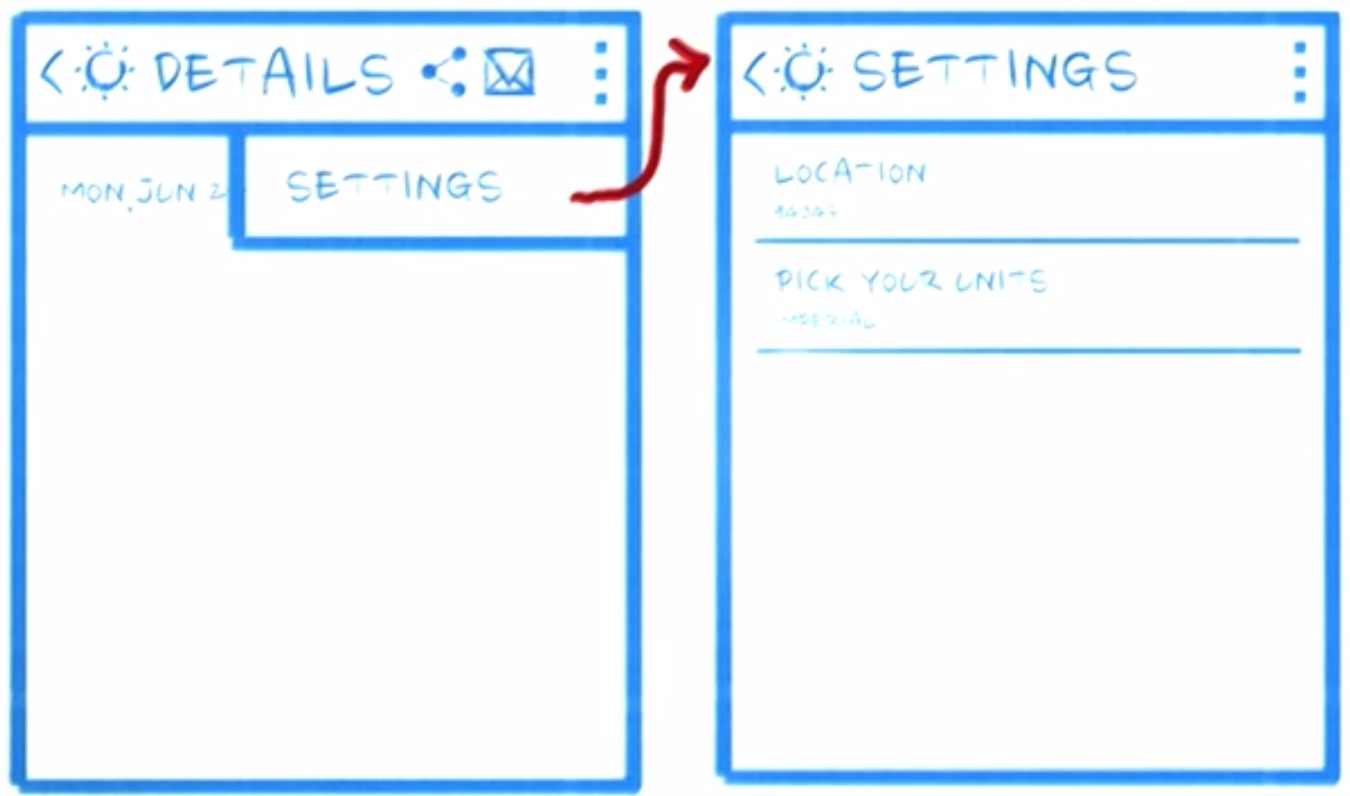 DETAILS
MON, JUN 2
SETTINGS
SETTINGS
LOCATION
PICK YOUR UNITS
IMPERIAL